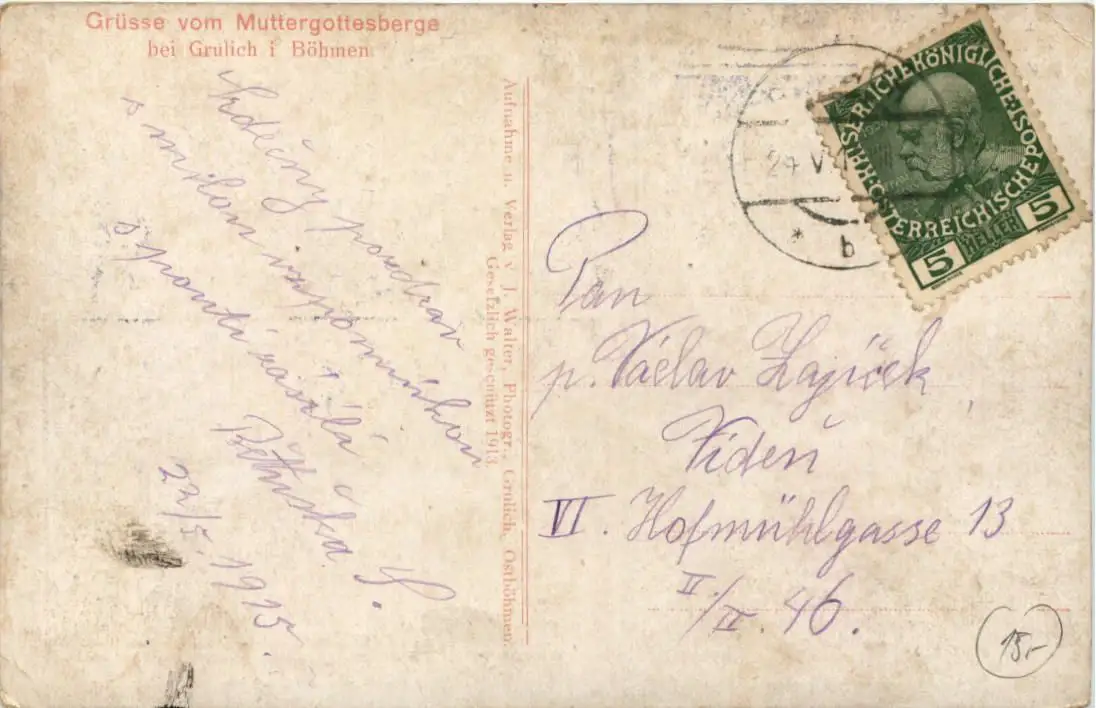 Grüsse vom Muttergottesberge
bei Grulich i Böhmen
Srdečný pozdrav
s milou vzpomínkou
s pouti zasílá
S.
23/5. 1915.
Aufnahme u. Verlag v J. Walter, Photogr., Grulich, Ostböhmen.
Gesetzlich geschützt 1913.
24 V
* b
KAISERLICHE KÖNIGLICHE
ÖSTERREICHISCHE POST
5 HELLER 5
Pan
p. Václav Zajíček
Vídeň
VI. Hofmühlgasse 13
II/IV. 46.
15,-